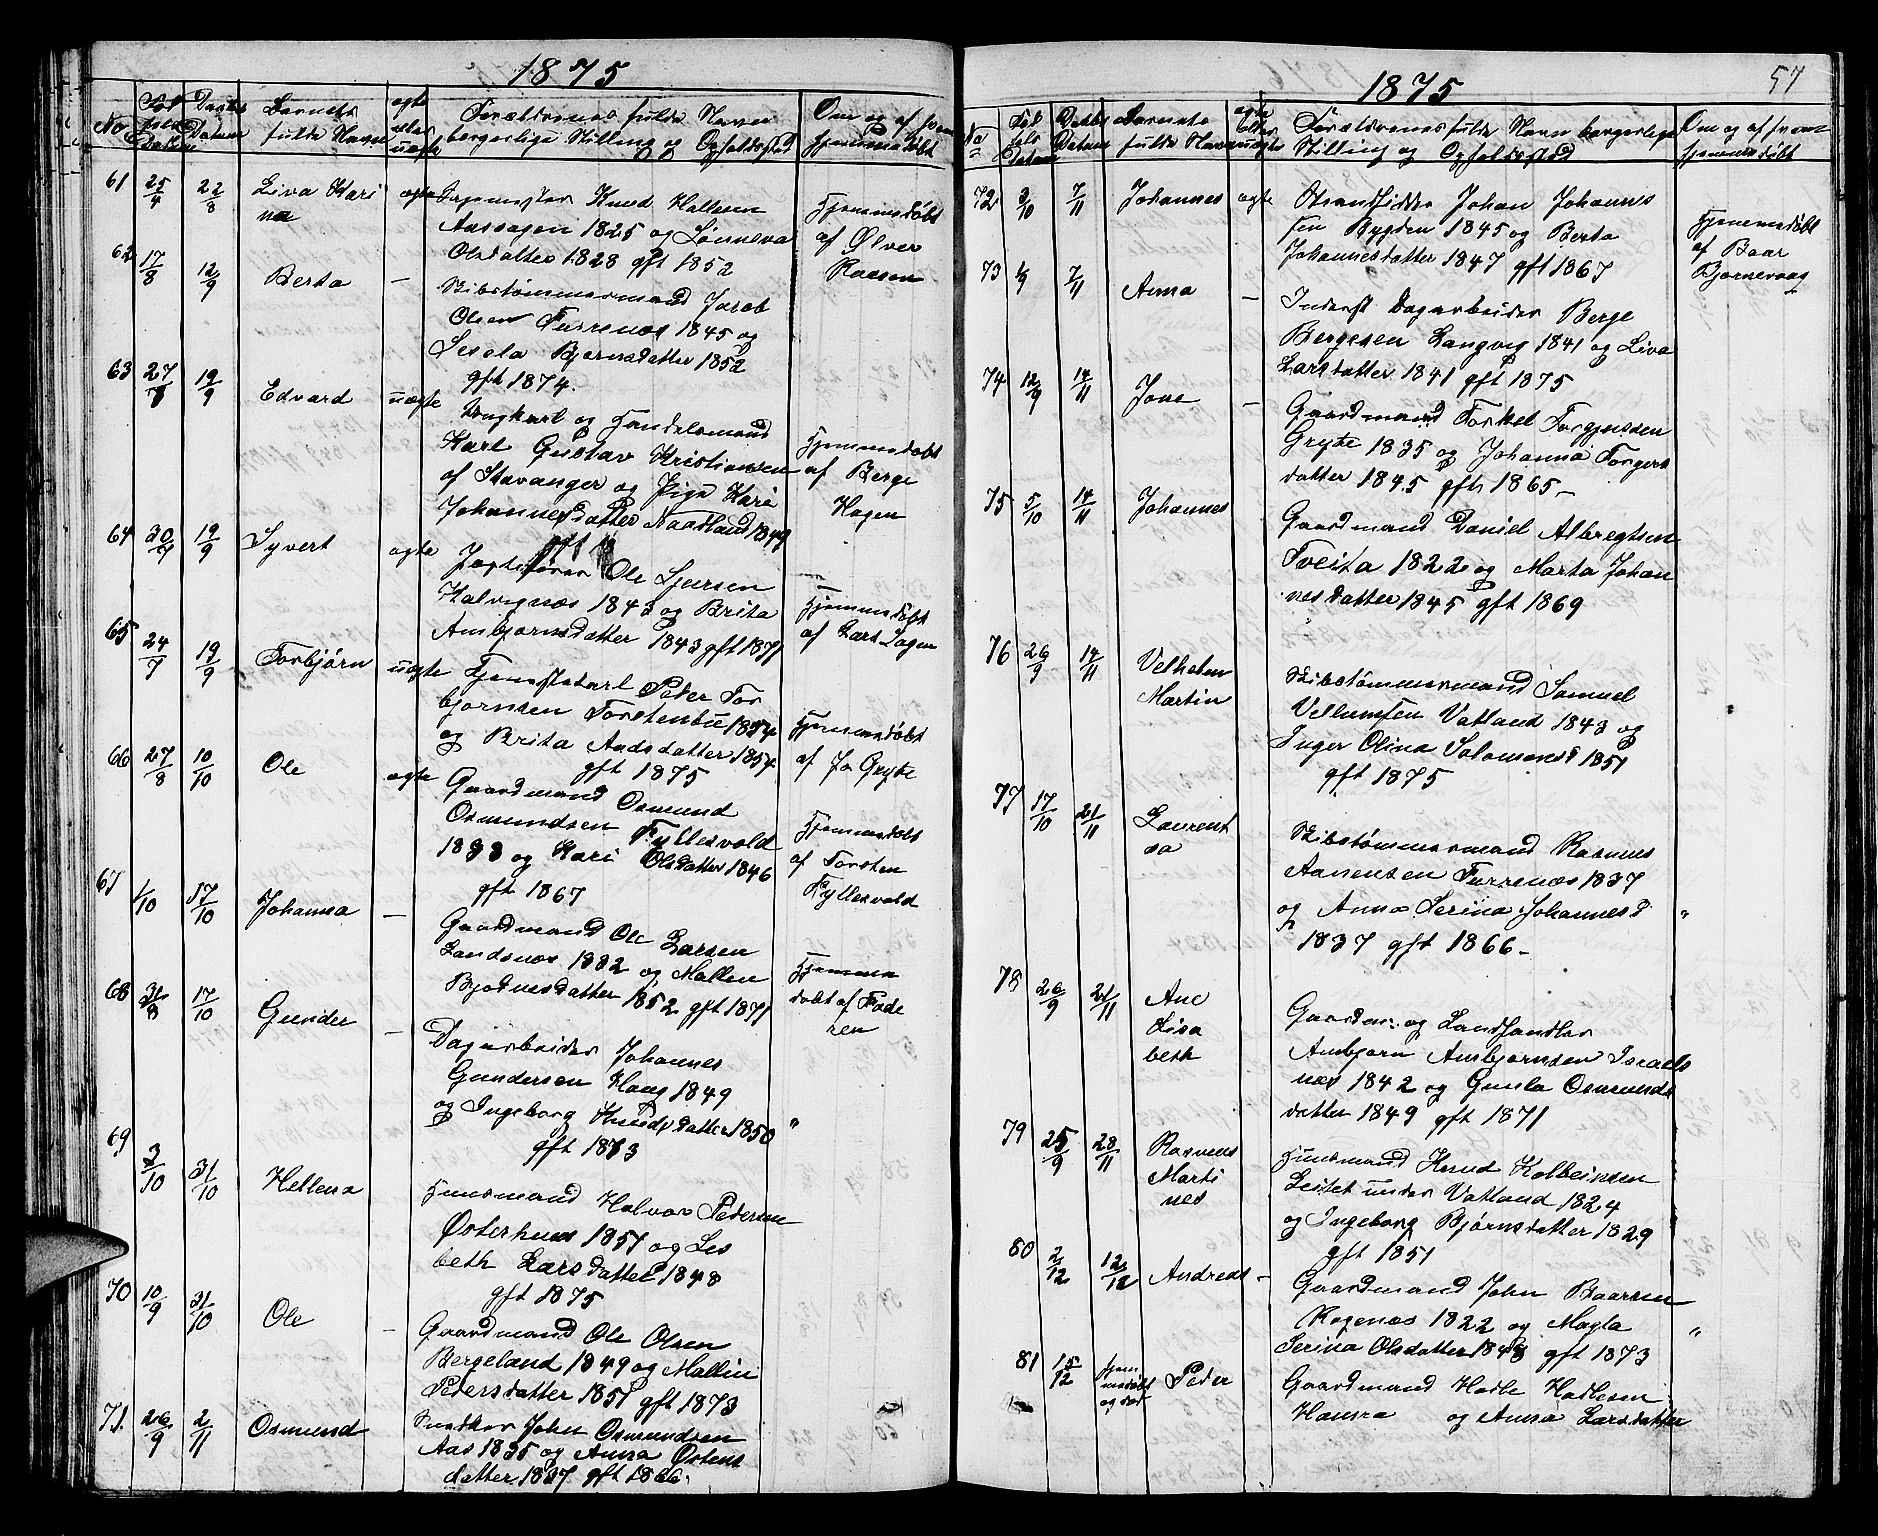 1875
No Fødselsdatum Daabsdatum Barnets fulde Navn ægte eller uægte Forældrenes fulde Navn borgerlige Stilling og Opholdssted Om og af hvem hjemmedøbt
61 25/4 22/8 Liva Kari ægte Knud Hallesen Hjemmedøbt
na Aasvagen 1825 og Lønneva af Ølver
Olsdatter 1828 gft 1852 Raasen
62 17/8 12/9 Berta – Skibstømmermand Jacob
Olsen Furrenæs 1845 og
Sesela Bjørnsdatter 1852
gft 1874.
63 27/8 19/9 Edvard uægte Ungkarl og Handelsmand
Karl Gustav Kristiansen Hjemmedøbt
af Stavanger og Pige Kari af Berge
Johannesdatter Naadland 1849 Hagen
64 30/7 19/9 Syvert ægte Jagtefører Ole Sjursen
Kalvignæs 1843 og Brita Hjemmedøbt
Ambjørnsdatter 1843 gft 1871 af Lars
65 24/7 19/9 Torbjørn uægte Tjenestekarl Peder Tor
bjørnsen Torstenbu 1854 Hjemmedøbt
og Brita Aadsdatter 1854 af Jo Gryte
gft 1875
66 27/8 10/10 Ole ægte Gaardmand Osmund
Osmundsen Fyllesvold Hjemmedøbt
1838 og Kari Olsdatter 1846 af Torsten
gft 1867 Fyllesvold
67 1/10 17/10 Johanna – Gaardmand Ole Larsen
Landsnæs 1832 og Mallen Hjemme
Bjodnesdatter 1852 gft 1871 døbt af Fade
ren
68 31/8 17/10 Gunder – Dagarbeider Johannes
Gundersen Haag 1849
og Ingeborg Knudsdatter 1850 "
gft 1873
69 3/10 31/10 Hellena Huusmand Halvor Pedersen
Østerhuus 1851 og Les
beth Larsdatter 1848
gft 1875
70 10/9 31/10 Ole – Gaardmand Ole Olsen
Bergeland 1849 og Mallin
Pedersdatter 1851 gft 1873
71. 26/9 2/11 Osmund Snedker John Osmundsen
Aas 1835 og Anna Østens
datter 1837 gft 1866.
57
1875
No Fødselsdatum Daabsdatum Barnets fulde Navn ægte eller uægte Forældrenes fulde Navn borgerlige Stilling og Opholdssted Om og af hvem hjemmedøbt
72 3/10 7/11 Johannes ægte Strandsidder Johan Johannes
sen Bygden 1845 og Berta Hjemmedøbt
Johannesdatter 1847 gft 1867 af Baar
Bjørnevaag
73 6/9 7/11 Anna – Inderst Dagarbeider Berge
Bergesen Langvig 1841 og Liva
Larsdatter 1841 gft 1875
74 12/9 14/11 Jone – Gaardmand Torkel Torgjussen
Gryte 1835 og Johanna Torgers
datter 1845 gft 1865 –
75 5/10 14/11 Johannes Gaardmand Daniel Albregtsen
Tveita 1822 og Marta Johan
nesdatter 1845 gft 1869
76 26/9 14/11 Velhelm
Martin Skibstømmermand Samuel
Vellumsen Vatland 1843 og
Inger Olina Salomonsd 1851
gft 1875
77 17/10 21/11 Laurent
sa Skibstømmermand Rasmus
Aanensen Furrenæs 1837
og Anna Serina Johannesd "
1837 gft 1866 –
78 26/9 21/11 Ane
Lisa
beth Gaardm. og Landhandler
Ambjørn Ambjørnsen Israels
næs 1842 og Gunla Osmunds
datter 1849 gft 1871
79 25/9 28/11 Rasmus
Marti
nes Huusmand Knud Kolbeinsen
Leitet under Vatland 1824
og Ingeborg Bjørnsdatter 1829
gft 1851
80 2/12 12/12 Andreas – Gaardmand John Baarsen
Rogenæs 1822 og Magla "
Serina Olsdatter 1848 gft 1873
81 15/12 hjem
medøbt
og død Peder Gaardmand Hadle Hadlesen
Hamra og Anna Larsdatter